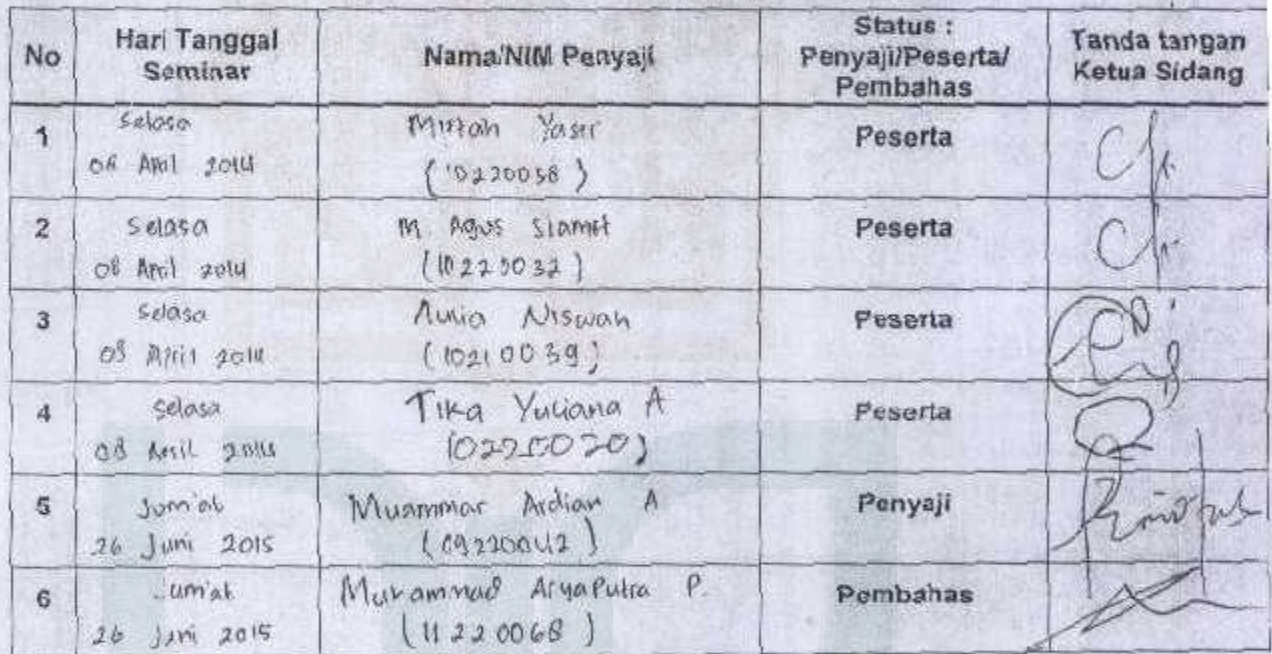 No
Hari Tanggal
Seminar
Nama/NIM Penyaji
Status :
Penyaji/Peserta/
Pembahas
Tanda tangan
Ketua Sidang
1
Selasa
08 April 2014
Yasir
(10220038)
Peserta
2
Selasa
08 April 2014
M. Agus Slamet
(10220032)
Peserta
3
Selasa
08 April 2014
Aulia Niswah
(10210039)
Peserta
4
Selasa
08 April 2014
Tika Yuliana A
10220020)
Peserta
5
Jum'at
26 Juni 2015
Muammar Ardian A
(09220042)
Penyaji
6
Jum'at
26 Juni 2015
Muhammad Arya Putra P.
(11220068)
Pembahas